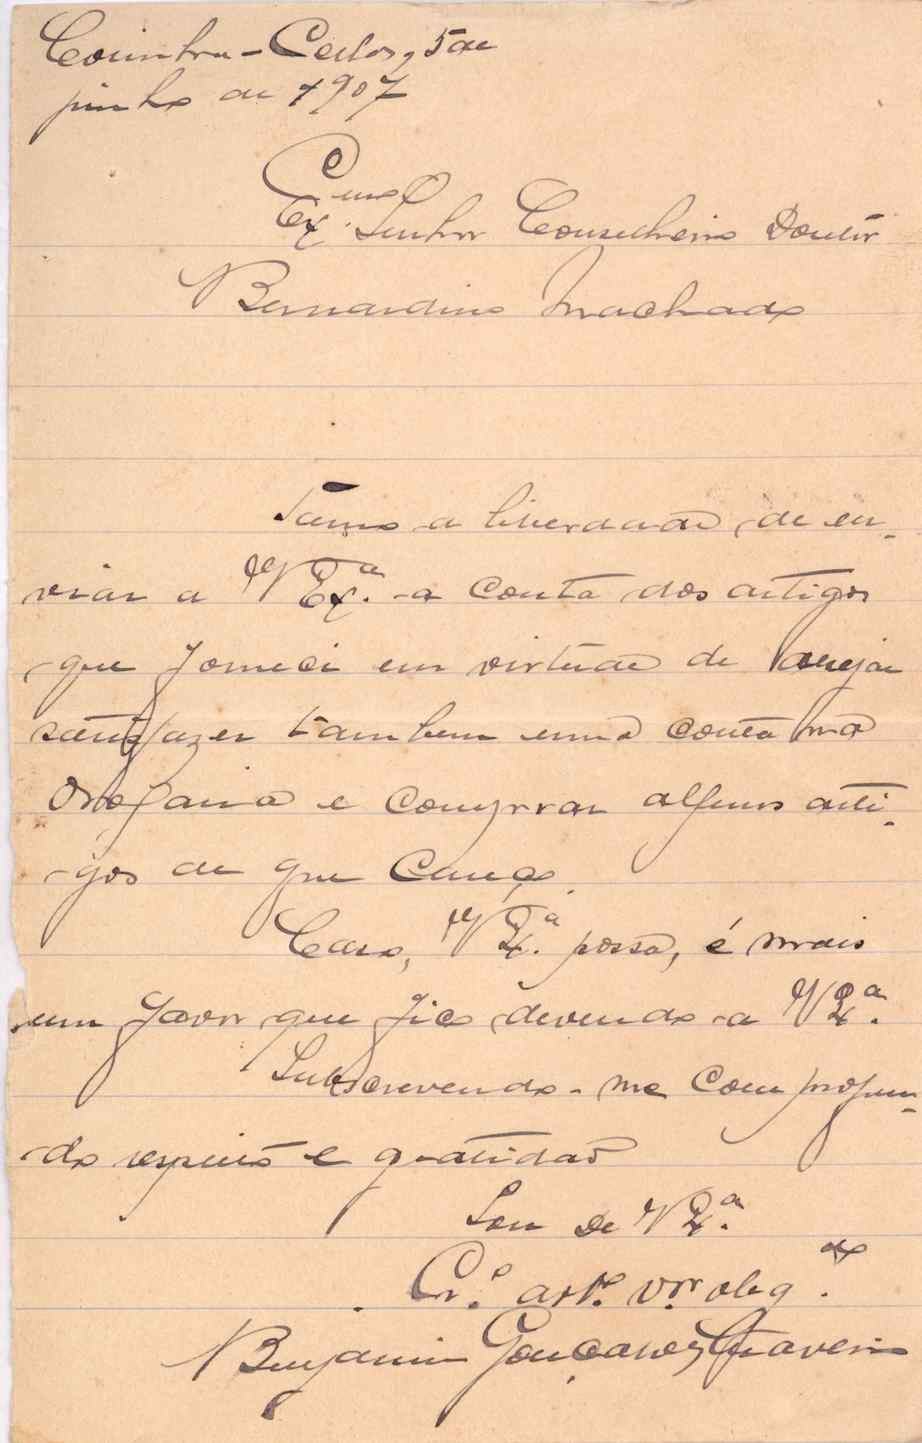 Coimbra - Cellas, 5 de
junho de 1907
Ex.mo Senhor Conselheiro Doutor
Bernardino Machado
Tomo a liberdade de en-
viar a V Ex.a a conta dos artigos
que forneci em virtude de desejar
satisfazer tambem uma conta na
drogaria e comprar alguns arti-
gos de que
Caso, V Ex.a possa, é mais
um favor que fico devendo a V Ex.a
Subscrevendo-me com profun-
do respeito e gratidão
Sou de V Ex.a
Cr.o att.o v.or obg.do
Benjamim Gonçalves